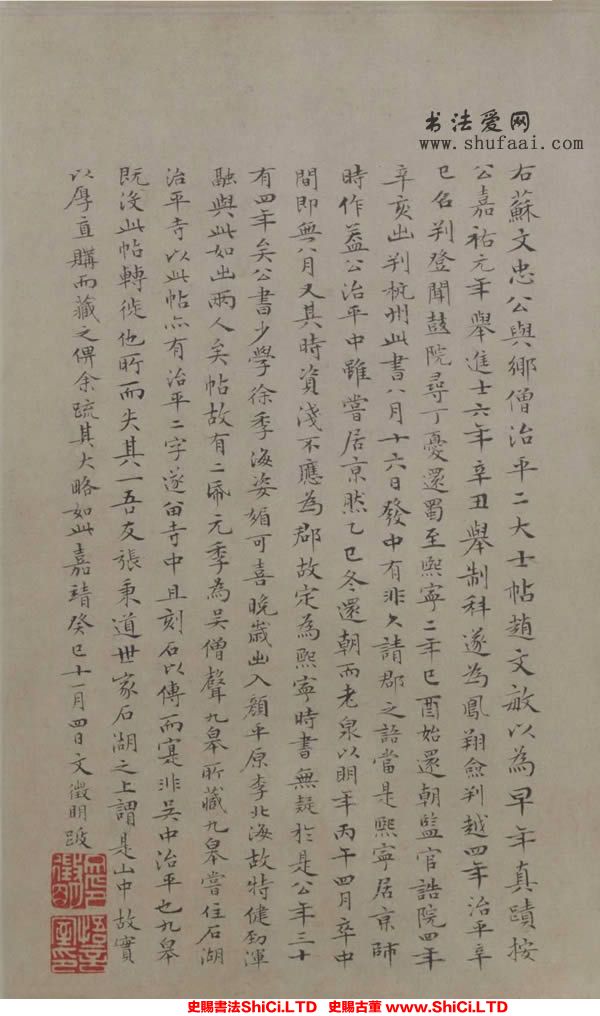 书法爱网
www.shufaai.com
右蘇文忠公與鄉僧治平二大士帖趙文敏以為早年真蹟按
公嘉祐元年舉進士六年辛丑舉制科遂為鳳翔僉判越四年治平辛
巳名判登聞鼓院尋丁憂還蜀至熙寧二年己酉始還朝監官誥院四年
辛亥出判杭州此書八月十六日發中有非久請郡之語當是熙寧居京師
時作蓋公治平中雖嘗居京然乙巳冬還朝而老泉以明年丙午四月卒中
間即無八月又其時資淺不應為郡故定為熙寧時書無疑於是公年三十
有四年矣公書少學徐季海姿媚可喜晚歲出入顏平原李北海故特健勁渾
融與此如出兩人矣帖故有二帋元季為吳僧聲九皋所藏九皋嘗住石湖
治平寺以此帖亦有治平二字遂留寺中且刻石以傳而寔非吳中治平也九皋
既沒此帖轉徙他所而失其一吾友張秉道世家石湖之上謂是山中故實
以厚直購而藏之俾余疏其大略如此嘉靖癸巳十一月四日文徵明跋
史賜書法ShiCi.LTD 史賜古董 www.ShiCi.LTD